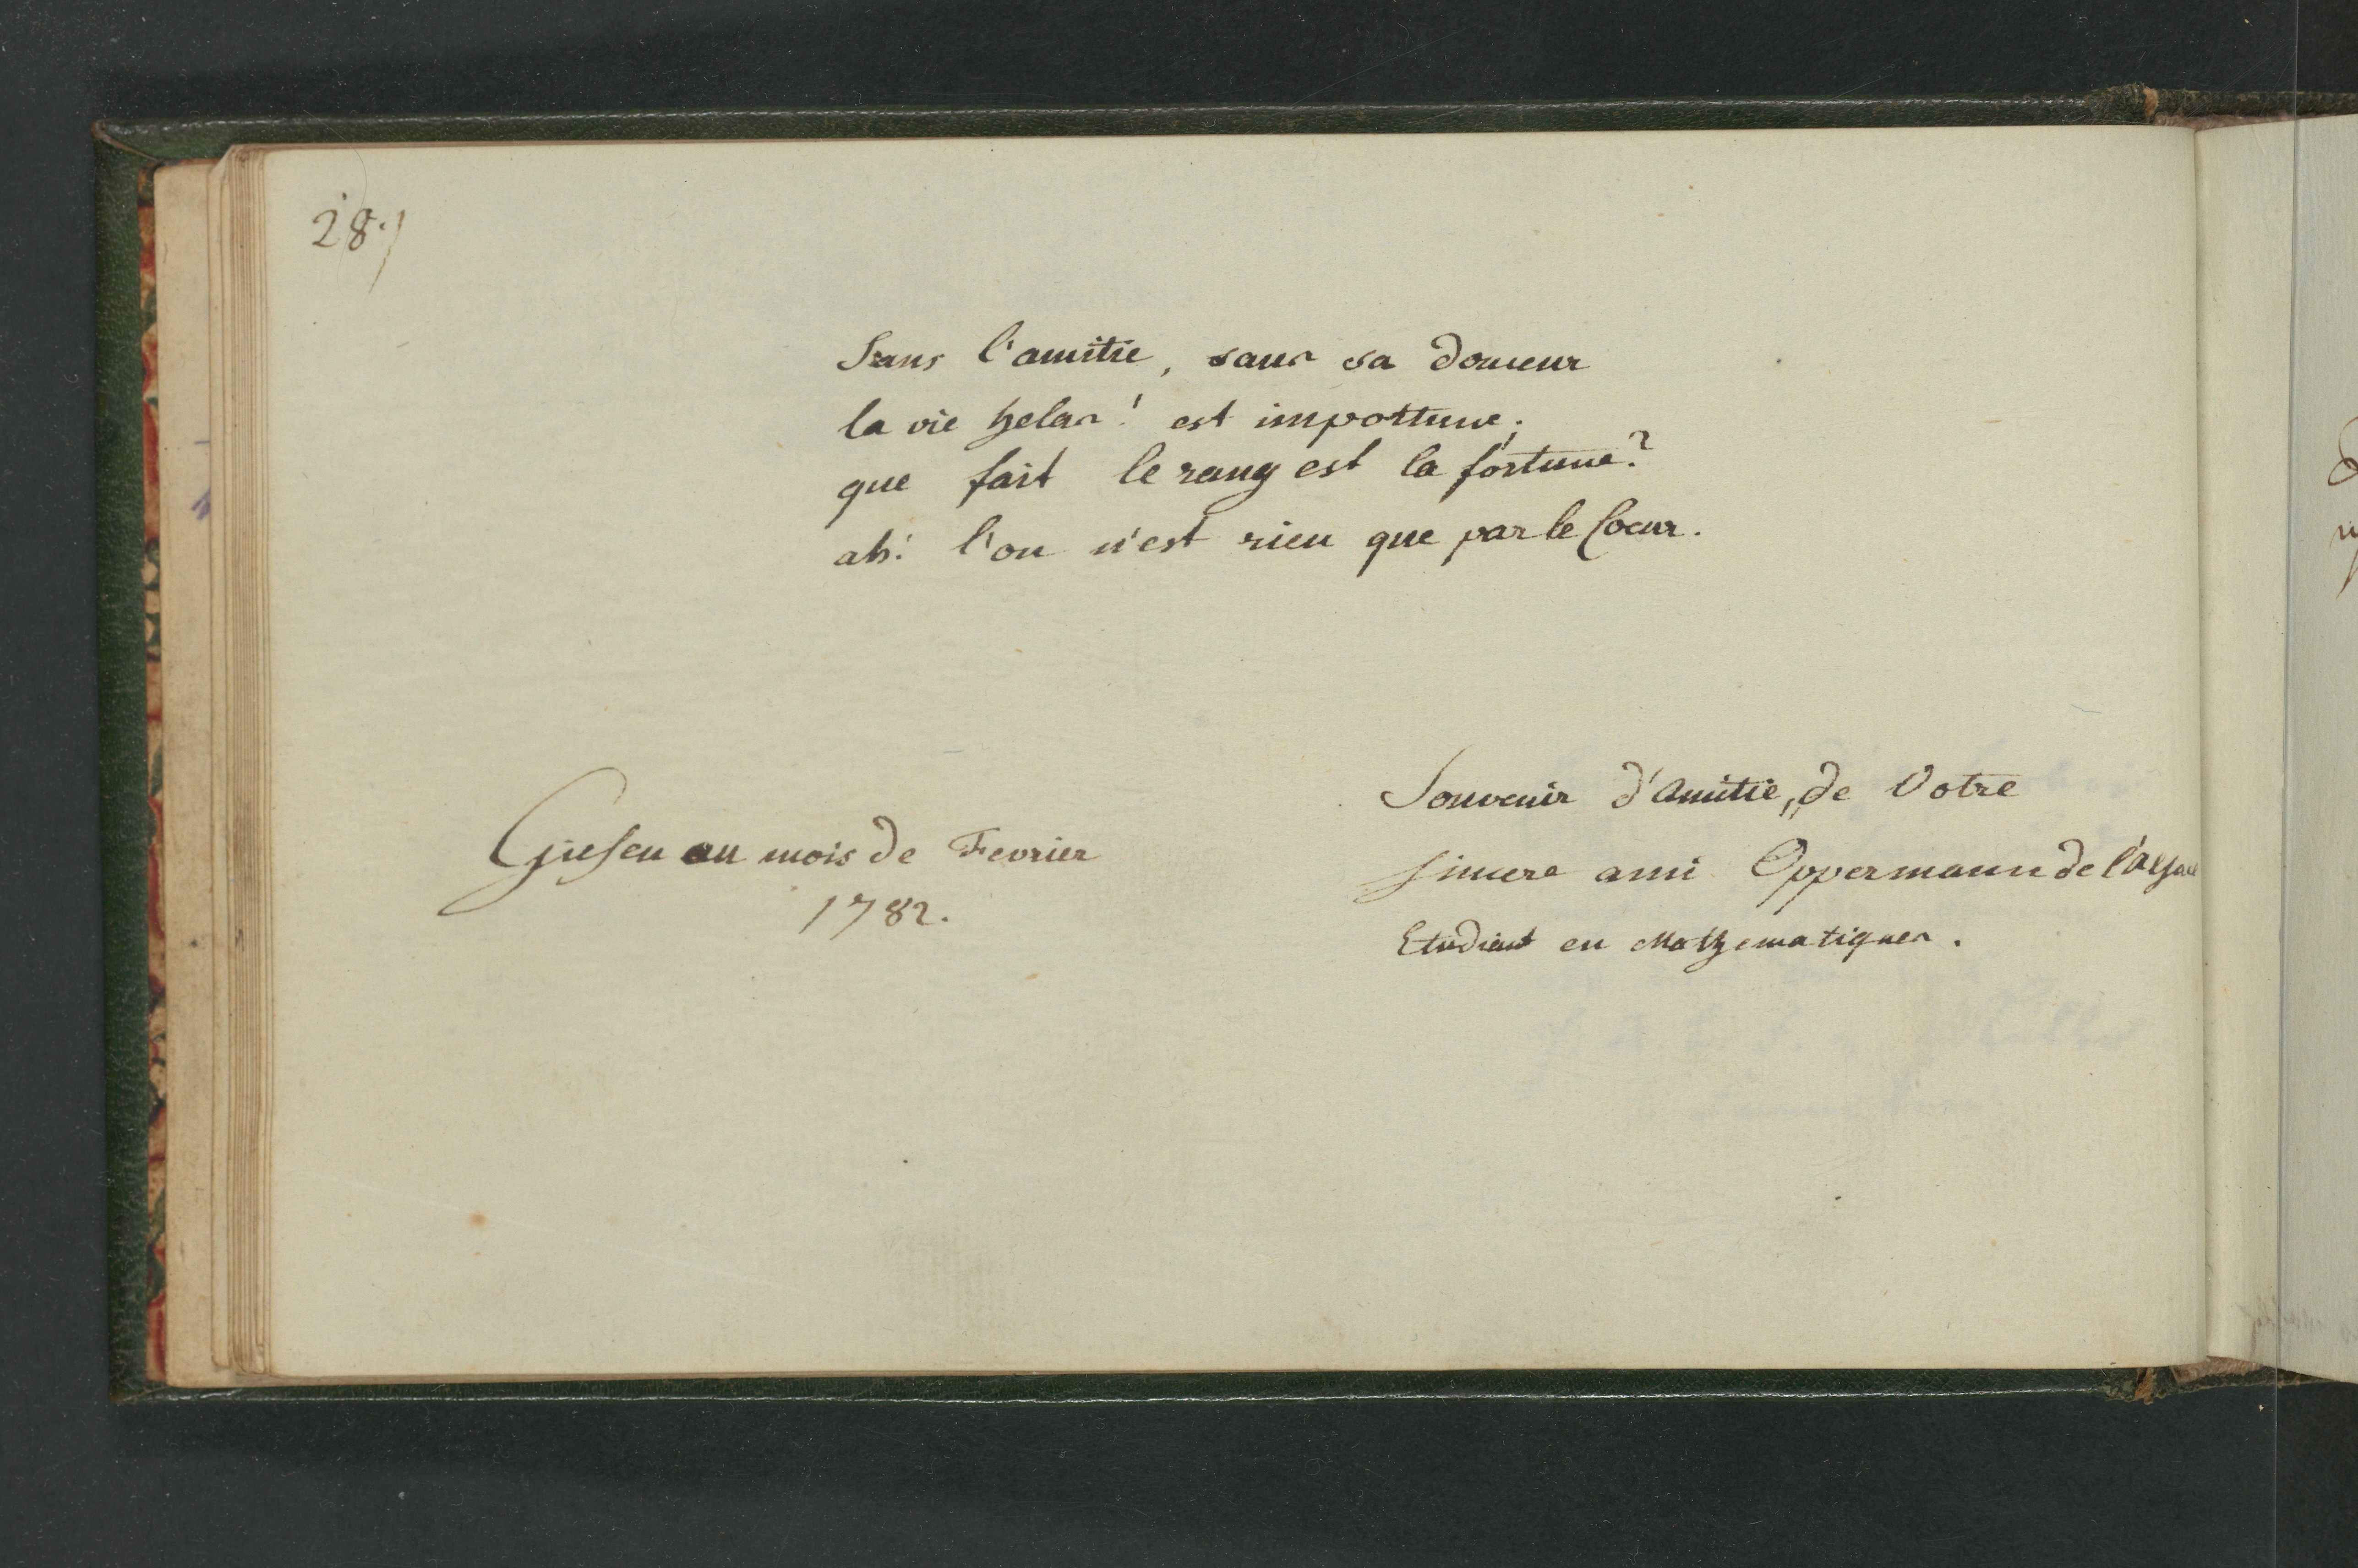 28.)
Sans l'amitie, sans sa douceur
la vie helas! est importune;
que fait le rang est la fortune?
ah! l'on n'est rien que par le Coeur.
Giesen au mois de Fevrier
1782.
Souvenir d'Amitie, de Votre
sincere ami Oppermann de l'Alsace
Etudiant en Mathematiques.